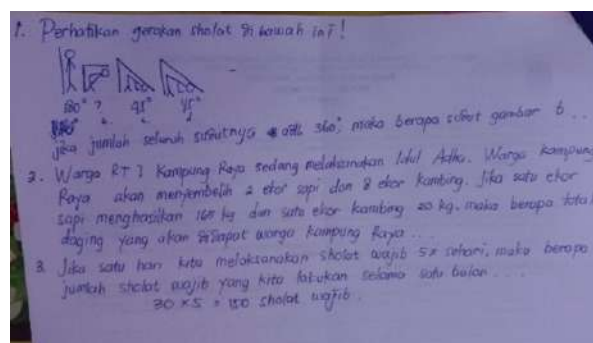 1. Perhatikan gerakan sholat di bawah ini!
180° ? 45° 45°
jika jumlah seluruh sudutnya adl 360°, maka berapa sudut gambar b ..
2. Warga RT 7 Kampung Raya sedang melaksanakan Idul Adha. Warga kampung
Raya akan menyembelih 2 ekor sapi dan 8 ekor kambing. Jika satu ekor
sapi menghasilkan 165 kg dan satu ekor kambing 20 kg. maka berapa total
daging yang akan didapat warga kampung Raya ...
3. Jika satu hari kita melaksanakan sholat wajib 5x sehari, maka berapa
jumlah sholat wajib yang kita lakukan selama satu bulan ....
30 x 5 = 150 sholat wajib.